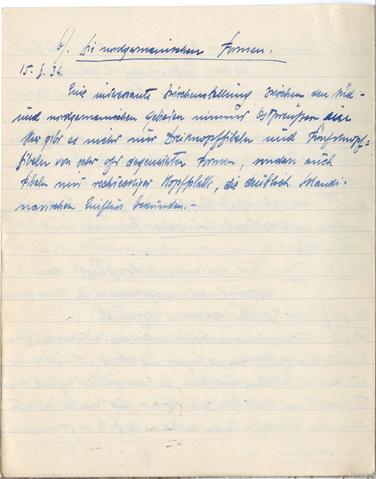 b/. Die nordgermanischen Formen.
15. I. 34.
Eine interessante Zwischenstellung zwischen den Süd-
und nordgermanischen Gebieten nimmt Ostpreußen ein
Hier gibt es nicht nur Dreiknopffibeln und Fünfknopf-
fibeln von sehr oft degenerierten Formen, sondern auch
Fibeln mit rechteckiger Kopfplatte, die deutlich skandi-
navischen Einfluss bekunden.-